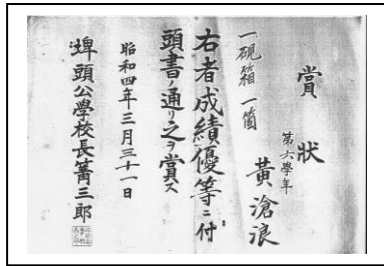 賞狀
第六學年
黃滄浪
一硯箱 一箇
右者成績優等ニ付
頭書ノ通リ之ヲ賞ス
昭和四年三月三十一日
埤頭公學校長菁三郎